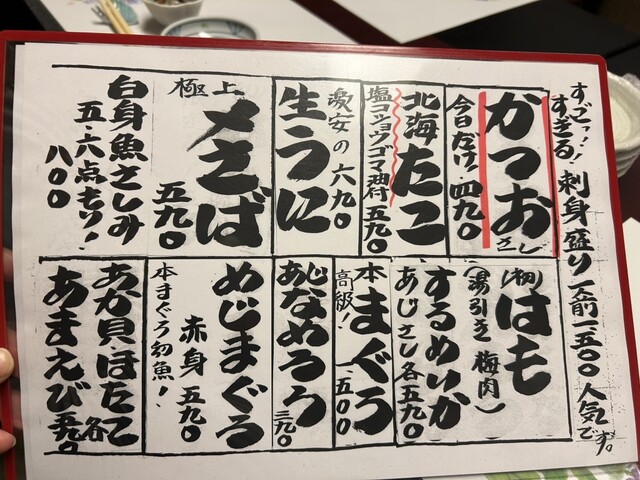 すごっ!!
すぎる!刺身盛り一人前一五〇〇人気です。
かつお
さし
今日だけ!四九〇
北海たこ
塩コショウゴマ油付五九〇
生うに
激安の六九〇
極上
〆さば
五九〇
白身魚さしみ
五・六点もり!
八〇〇
(初)はも
(湯引き梅肉)
するめいか
あじさし各五九〇
本まぐろ
高級!一五〇〇
あじなめろう
三九〇
めじまぐろ
赤身五九〇
本まぐろ幼魚!
あか貝・ほたて
あまえび各五九〇